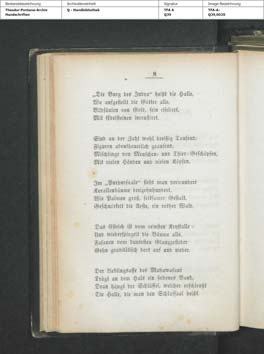 Bestandsbezeichnung
Archivalieneinheit
Signatur
Image-Bezeichnung
Theodor-Fontane-Archiv
Handschriften
Q - Handbibliothek
TFA A
Q39
TFA-A-
Q39_0020
8
„Die Burg des Indra“ heißt die Halle,
Wie aufgestellt die Götter alle,
Bildsäulen von Gold, fein ciselirt,
Mit Edelsteinen inkrustirt.
Sind an der Zahl wohl dreißig Tausend,
Figuren abenteuerlich grausend,
Mischlinge von Menschen- und Thier-Geschöpfen,
Mit vielen Händen und vielen Köpfen.
Im „Purpursaale“ sieht man verwundert
Korallenbäume dreizehnhundert,
Wie Palmen groß, seltsamer Gestalt,
Geschnörkelt die Aeste, ein rother Wald.
Das Estrich ist vom reinsten Krystalle
Und wiederspiegelt die Bäume alle.
Fasanen vom buntesten Glanzgefieder
Gehn gravitätisch dort auf und nieder.
Der Lieblingsaffe des Mahawasant
Trägt an dem Hals ein seidenes Band,
Dran hängt der Schlüssel, welcher erschließt
Die Halle, die man den Schlafsaal heißt.